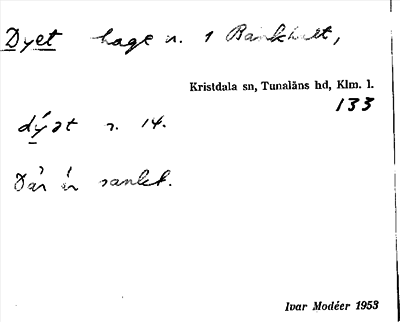 Dyet hage n. 1 Bankhult,
Kristdala sn, Tunaläns hd, Klm. l.
133
dýət n. 14.
Där är sankt.
Ivar Modéer 1953